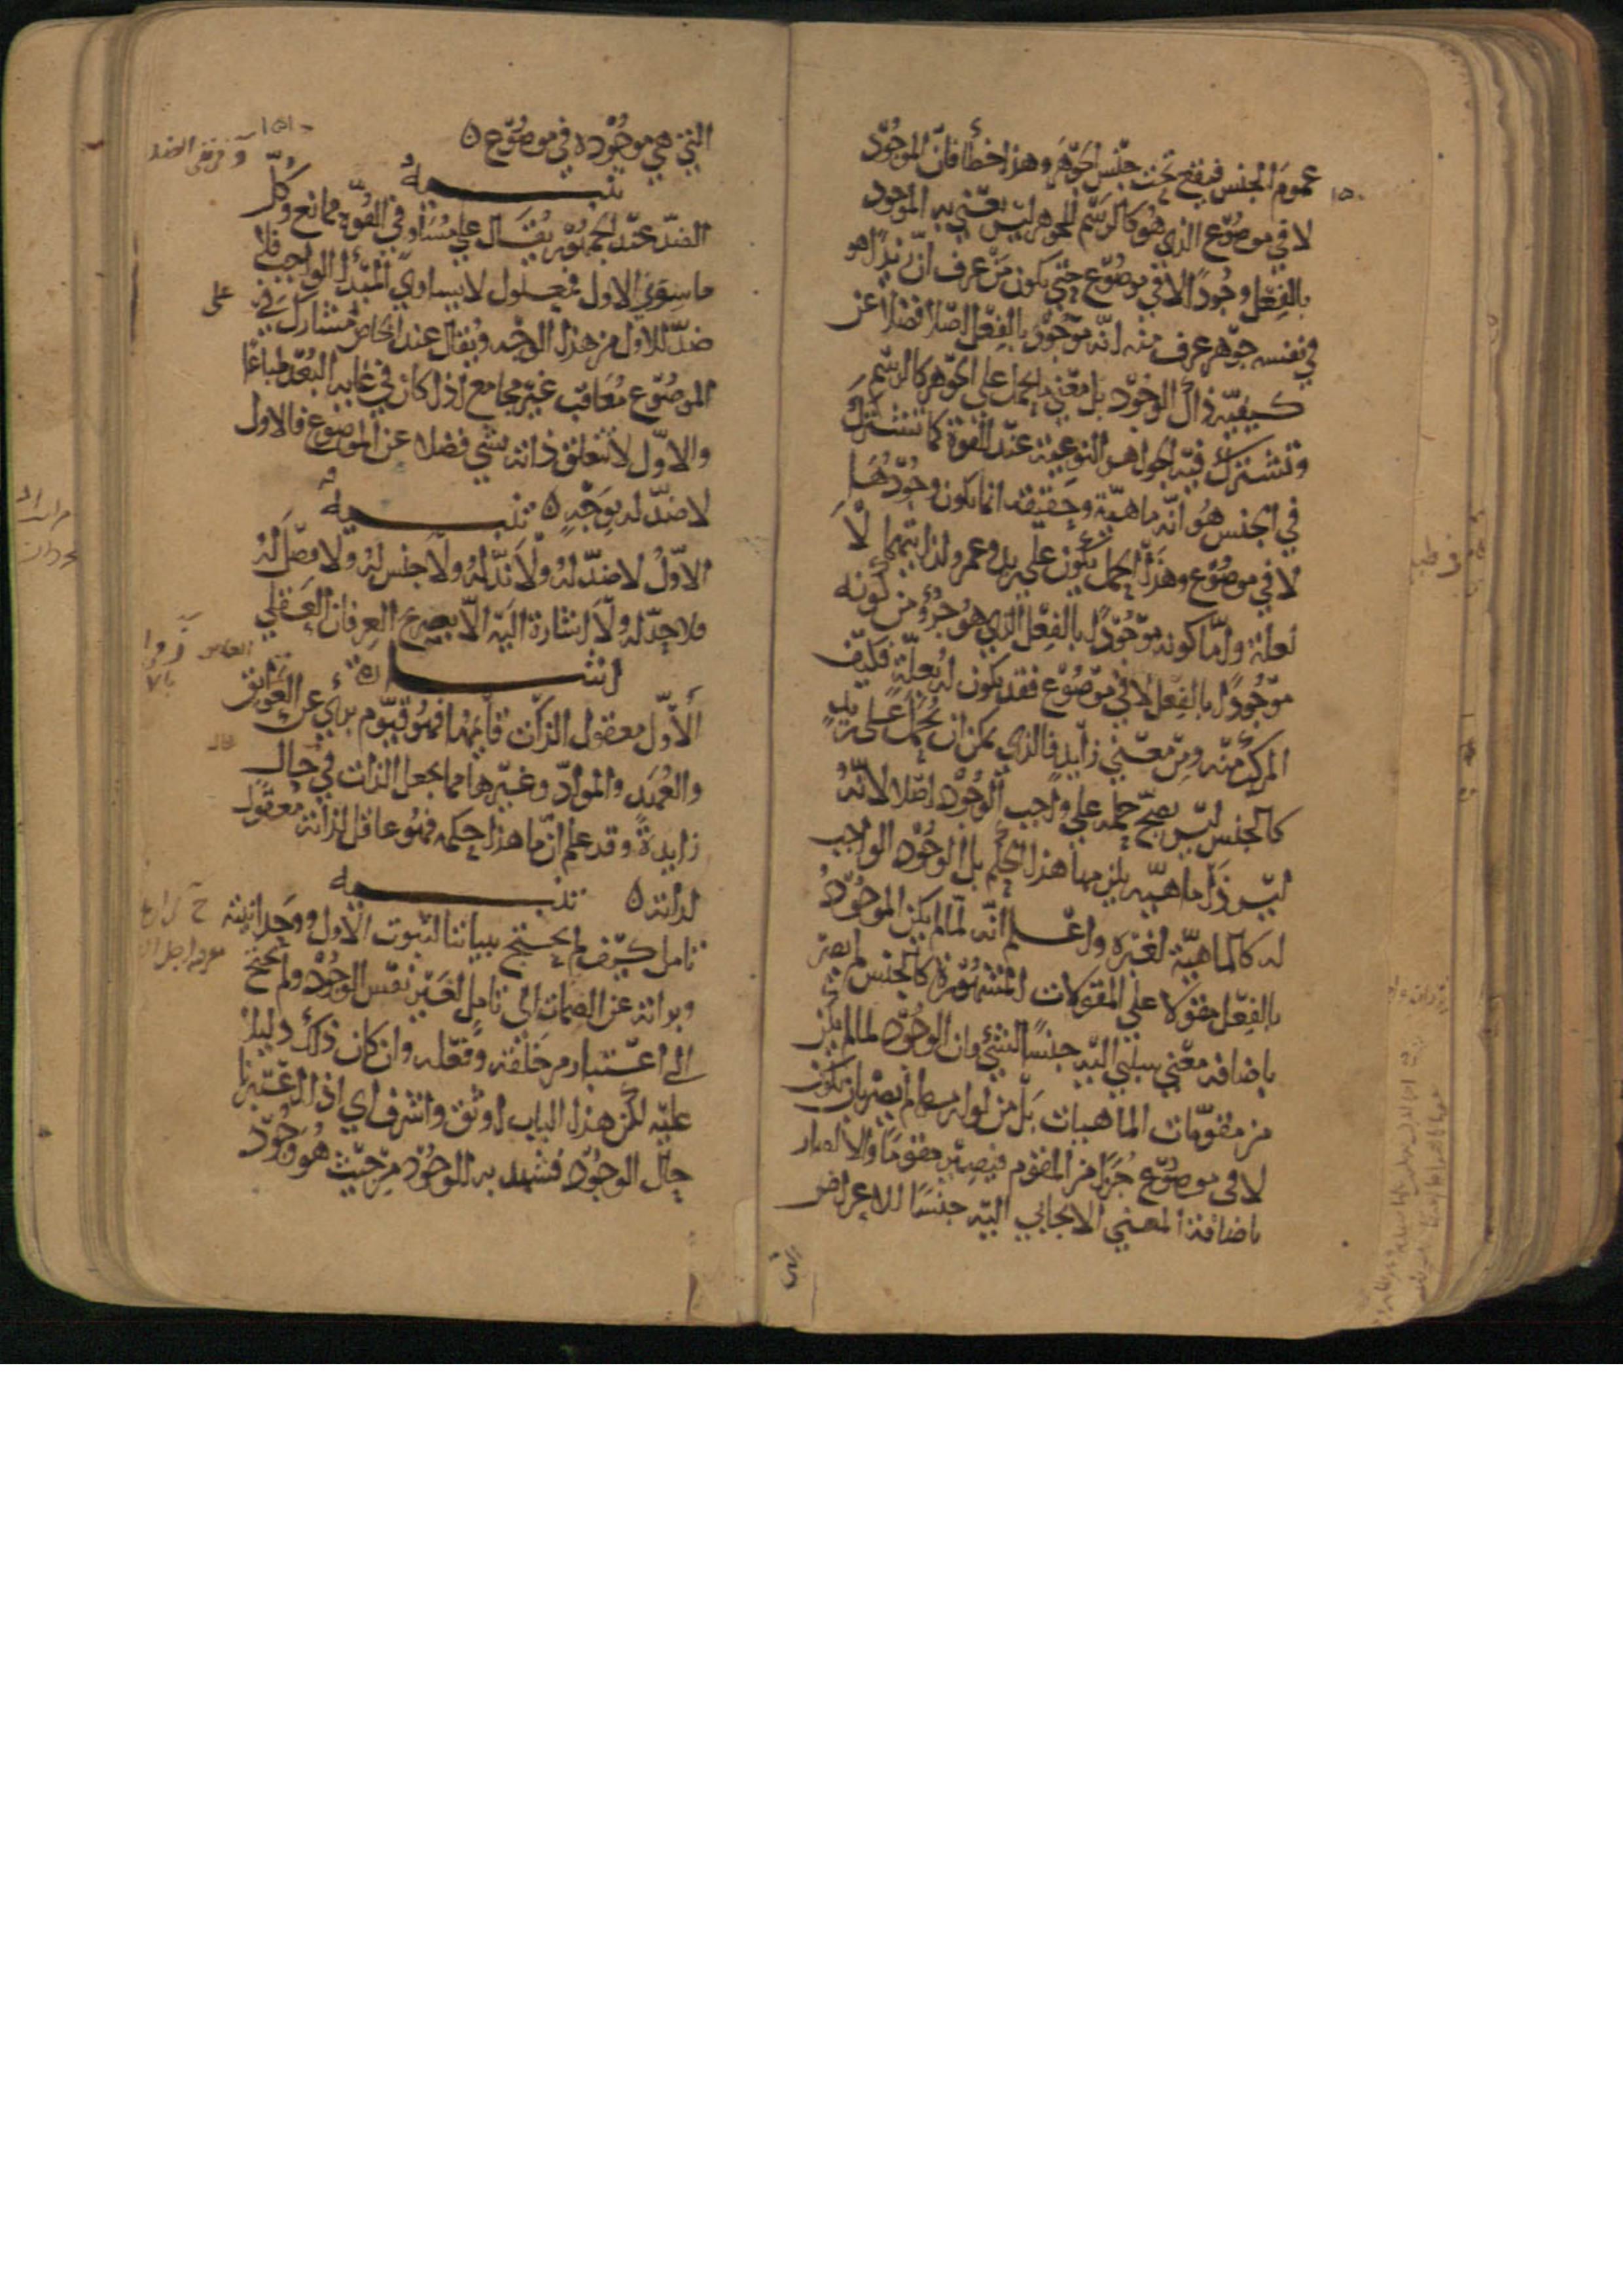 عموم الجنس فيقع تحت جنس الجوهر وهذا خطأ فان الموجود
١٥٠
لا في موضوع الذي هو كالرسم للجوهر ليس يعني به الموجود
بالفعل وجودا لا في موضوع حتى يكون من عرف ان زيدا هو
في نفسه جوهر عرف منه انه موجود بالفعل اصلا فضلا عن
كيفيه ذلك الوجود بل معنى ما يحمل على الجوهر كالرسم
وتشترك فيه الجواهر النوعية عند القوة كما تشترك
في الجنس هو انه ماهية وحقيقة انما يكون وجودها
لا في موضوع وهذا الحمل يكون على زيد وعمرو لذاتيهما لا
لعلة واما كونه موجودا بالفعل الذي هو جزؤ من كونه
موجودا بالفعل لا في موضوع فقد يكون له بعلة فكيف
المركب منه ومن معنى زايد فالذي يمكن ان يحمل على زيد
كالجنس ليس يصح حمله على واجب الوجود اصلا لانه
ليس ذا ماهيه يلزمها هذا الحكم بل الوجود الواجب
له كالماهية لغيره واعلم انه لما لم يكن الموجود
بالفعل مقولا على المقولات المشهورة كالجنس لم يصر
باضافة معنى سلبي اليه جنسا لشئ وان الوجود لما لم يكن
من مقومات الماهيات بل من لوازمها لم يصر بان يكون
لا في موضوع جزءا من المقوم فيصير مقوما والا لصار
باضافة المعنى الايجابي اليه جنسا للاعراض
التي
التي هي موجوده في موضوع ٥
١٥١
تنبيه
الضد عند الجمهور يقال على مساو في القوة ممانع وكل
ما سوى الاول فمعلول لا يساوي المبدأ الواجب فلا
ضد للاول من هذا الوجه ويقال عند الخاص لمشارك في
الموضوع معاقب غير مجامع اذا كان في غايه البعد طباعا
والاول لا تتعلق ذاته بشي فضلا عن الموضوع فالاول
لا ضد له بوجه ٥ تنبيه
الاول لا ضد له ولا ند له ولا جنس له ولا فصل له
فلا حد له ولا اشارة اليه الا بصريح العرفان العقلي
اشارة
الاول معقول الذات قايمها فهو قيوم بري عن العلايق
والعهد والمواد وغيرها مما يجعل الذات في حال
زايدة وقد علم ان ما هذا حكمه فهو عاقل لذاته معقول
لذاته ٥ تنبيه
تامل كيف لم يحتج بياننا لثبوت الاول ووحدانيته
وبرائه عن الصمات الى تامل لغير نفس الوجود ولم يحتج
الى اعتبار من خلقه وفعله وان كان ذلك دليلا
عليه لكن هذا الباب اوثق واشرف اي اذا اعتبرنا
حال الوجود فشهد به الوجود من حيث هو وجود